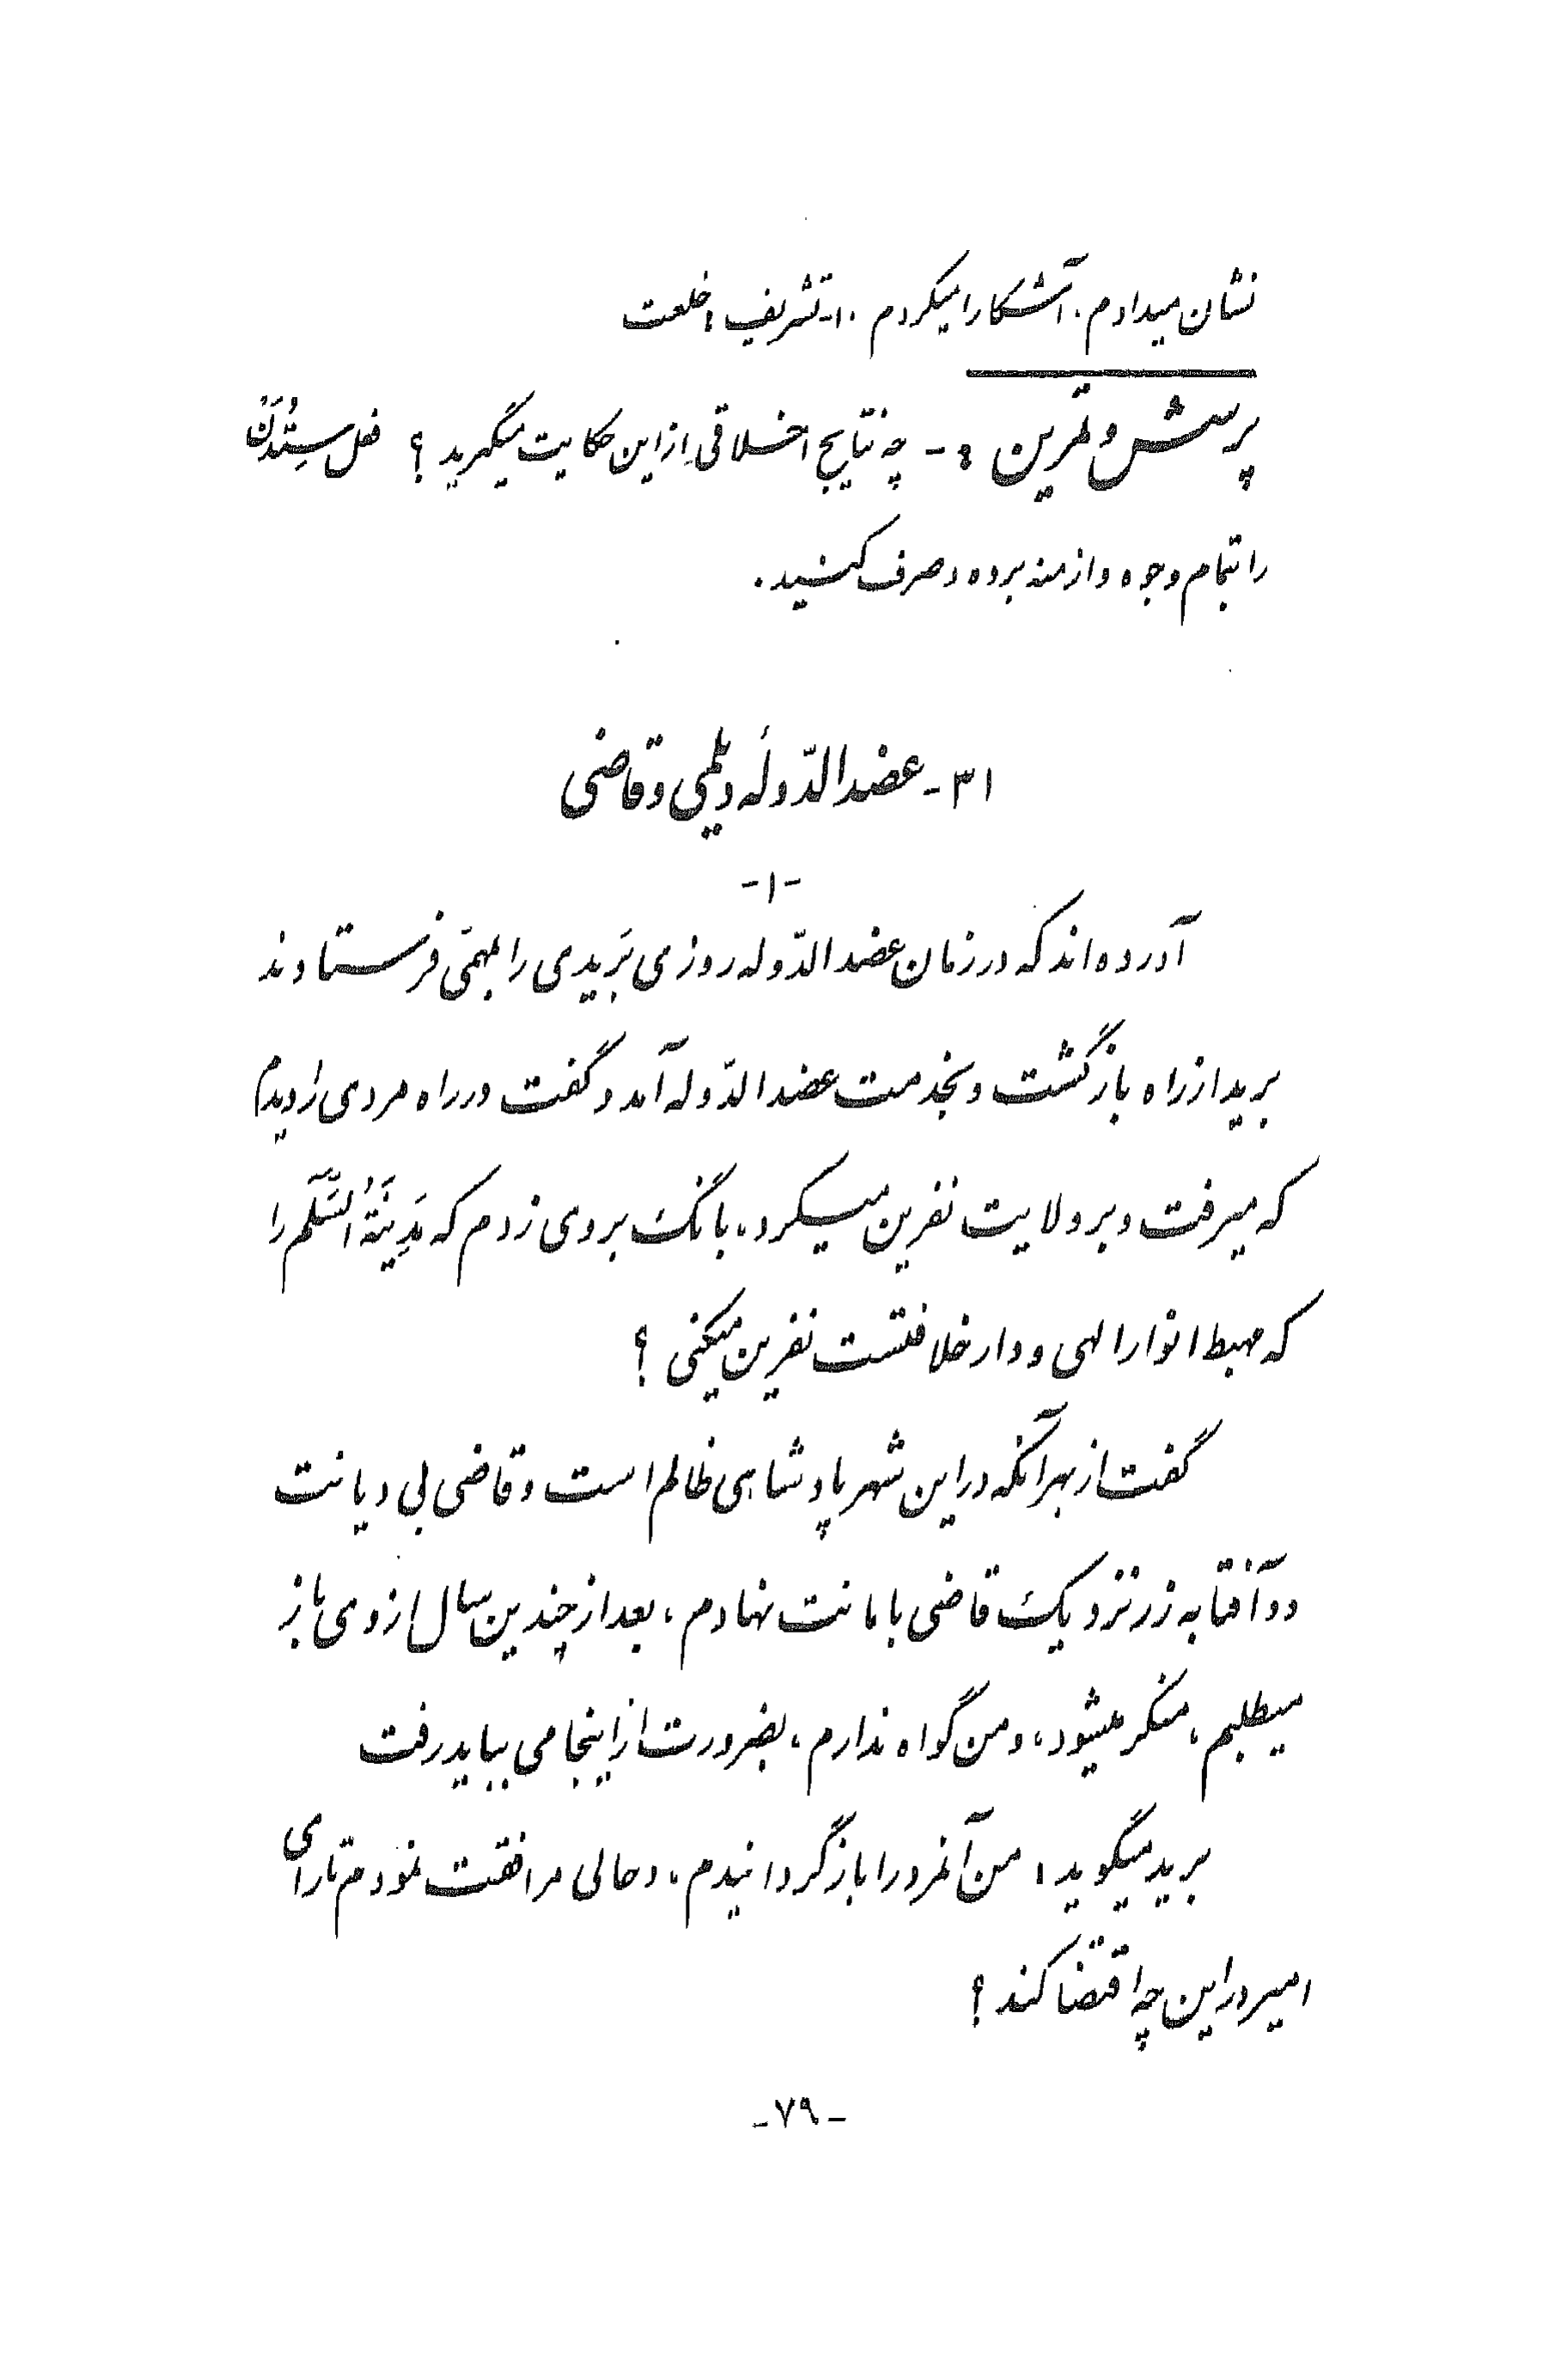 نشان میدادم. آشکارا میکردم ۱۰۰- تشریف: خلعت
پرسش و تمرین :- چه نتایج اخلاقی از این حکایت میگیرید؟ فعل سِتُدَنْ
را بتمام وجوه و ازمنه برده و صرف کنید.
۳۱- عضدالدّولهٔ دیلمی و قاضی
-۱-
آورده‌اند که در زمان عضدالدّوله روزی بَریدی را بمهمّی فرستادند
برید از راه بازگشت و بخدمت عضدالدّوله آمد و گفت در راه مردی را دیدم
که میرفت و بر ولایت نفرین میکرد، بانگ بر وی زدم که مَدِینَةُ السَّلٰم را
که مهبط انوار الهی و دار خلافتست نفرین میکنی؟
گفت از بهر آنکه در این شهر پادشاهی ظالم است و قاضی بی دیانت
دو آفتابه زر نزدیک قاضی بامانت نهادم، بعد از چندین سال از وی باز
میطلبم، منکر میشود، و من گواه ندارم، بضرورت از اینجا می بباید رفت
برید میگوید: من آنمرد را باز گردانیدم، و حالی مرافقت نمودم تا رای
امیر در این چه اقتضا کند؟
-۷۹-